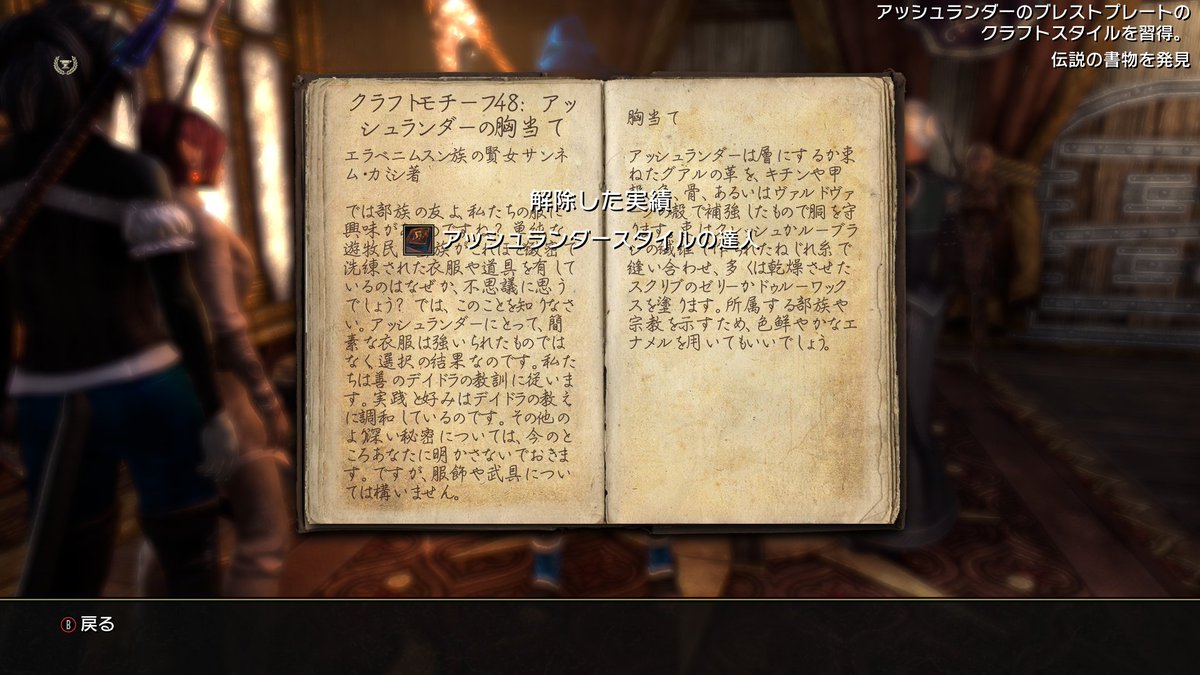 アッシュランダーのブレストプレートの
クラフトスタイルを習得。
伝説の書物を発見
クラフトモチーフ48: アッ
シュランダーの胸当て
エラベニムスン族の賢女サンネ
ム・カミシ著
では部族の友よ、私たちの服に
興味が
遊牧民
洗練された衣服や道具を有して
いるのはなぜか、不思議に思う
でしょう? では、このことを知りなさ
い。アッシュランダーにとって、簡
素な衣服は強いられたものでは
なく選択の結果なのです。私た
ちは善のデイドラの教訓に従いま
す。実践と好みはデイドラの教え
に調和しているのです。その他の
より深い秘密については、今のと
ころあなたに明かさないでおきま
す。ですが、服飾や武具につい
ては構いません。
解除した実績
アッシュランダースタイルの達人
胸当て
アッシュランダーは層にするか束
ねたグアルの革を、キチンや甲
骨、あるいはヴァルドヴァ
の殻で補強したもので胴を守
クレッシュかルーブラ
縫い合わせ、多くは乾燥させた
スクリブのゼリーかドゥルーワック
スを塗ります。所属する部族や
宗教を示すため、色鮮やかなエ
ナメルを用いてもいいでしょう。
B 戻る